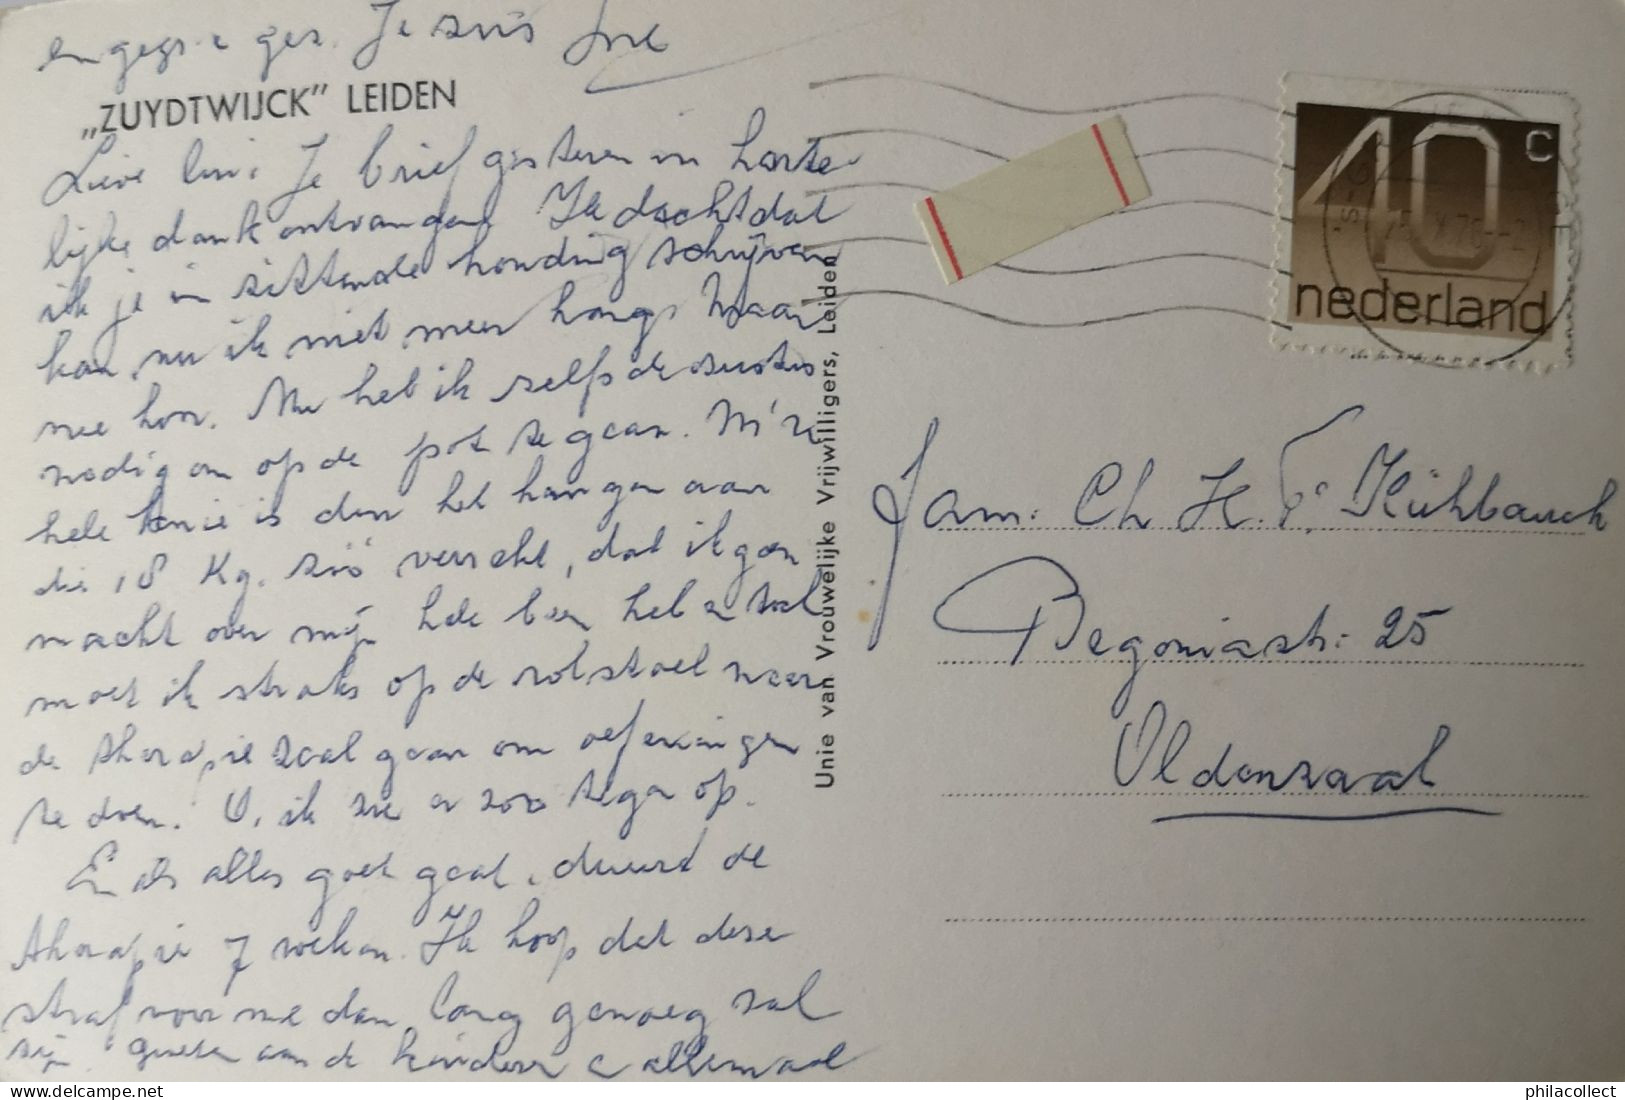 "ZUYDTWIJCK" LEIDEN
Je brief gisteren in harte-
lijke dank ontvangen Ik dacht dat
ik je in zittende houding schrijven
kan, nu ik niet meer hang. Maar
nee hoor. Nu heb ik zelfs de zusters
nodig om op de pot te gaan. M'n
hele knie is door het hangen aan
die 18 Kg. zóó verrekt, dat ik geen
macht over mijn hele been heb en zoal
moet ik straks op de rolstoel naar
de therapie zaal gaan om oefeningen
te doen. O, ik zie er zoo tegen op.
En als alles goed gaat, duurd de
therapie 7 weken. Ik hoop dat deze
straf voor me dan lang genoeg zal
zijn groeten aan de kinderen allemaal
en ges. Je zus
Unie van Vrouwelijke Vrijwilligers, Leiden
40 c
nederland
Fam: Ch H. Kühlbauch
Begoniastr: 25
Oldenzaal
philacollect